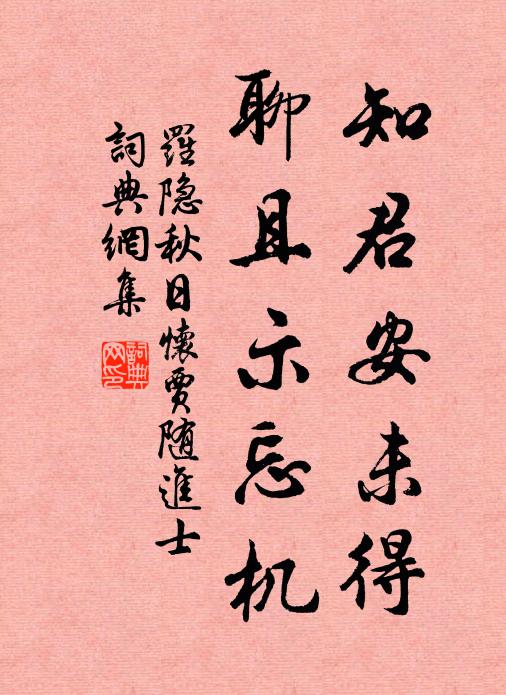 知君安未得
聊且示忘机
羅隐秋日懷賈随進士
詞典網集
詞典网印